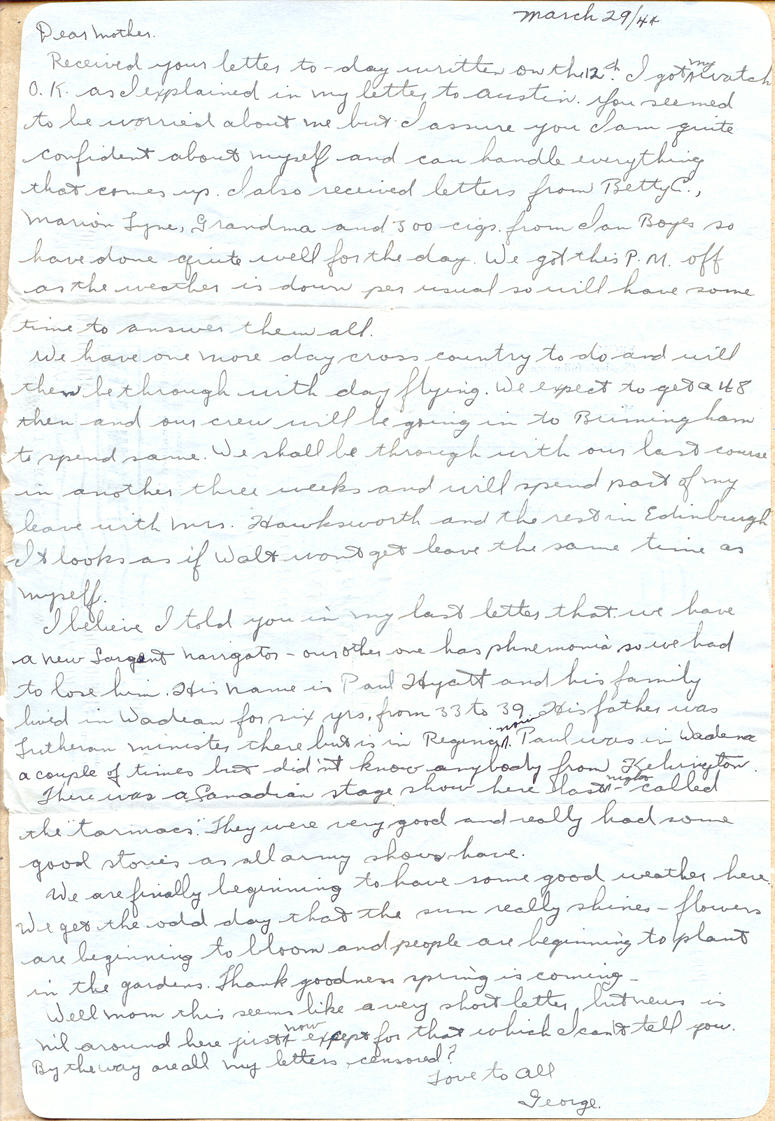 March 29/44
Dear Mother.
Received your letter to-day written on the 12th. I got my watch
O.K. as I explained in my letter to Austin. You seemed
to be worried about me but I assure you I am quite
confident about myself and can handle everything
that comes up. I also received letters from Betty C.,
Marion Lyne, Grandma and 300 cigs. from Ian Boyes so
have done quite well for the day. We got this P.M. off
as the weather is down per usual so will have some
time to answer them all.
We have one more day cross country to do and will
then be through with day flying. We expect to get a 48
then and our crew will be going in to Birmingham
to spend same. We shall be through with our last course
in another three weeks and will spend part of my
leave with Mrs. Hawksworth and the rest in Edinburgh
It looks as if Walt wont get leave the same time as
myself.
I believe I told you in my last letter that we have
a new Sargent navigator - our other one has phnemonia so we had
to lose him. His name is Paul Hyatt and his family
lived in Wadean for six yrs. from 33 to 39. His father was
Lutheran minister there but is in Regina now. Paul was in Wadena
a couple of times but didn't know anybody from Kelvington.
There was a Canadian stage show here last night - called
the "tarmacs". They were very good and really had some
good stories as all army shows have.
We are finally beginning to have some good weather here.
We get the odd day that the sun really shines - flowers
are beginning to bloom and people are beginning to plant
in the gardens. Thank goodness spring is coming -
Well mom this seems like a very short letter, but news is
nil around here just now except for that which I can't tell you.
By the way are all my letters censored?
Love to All
George.